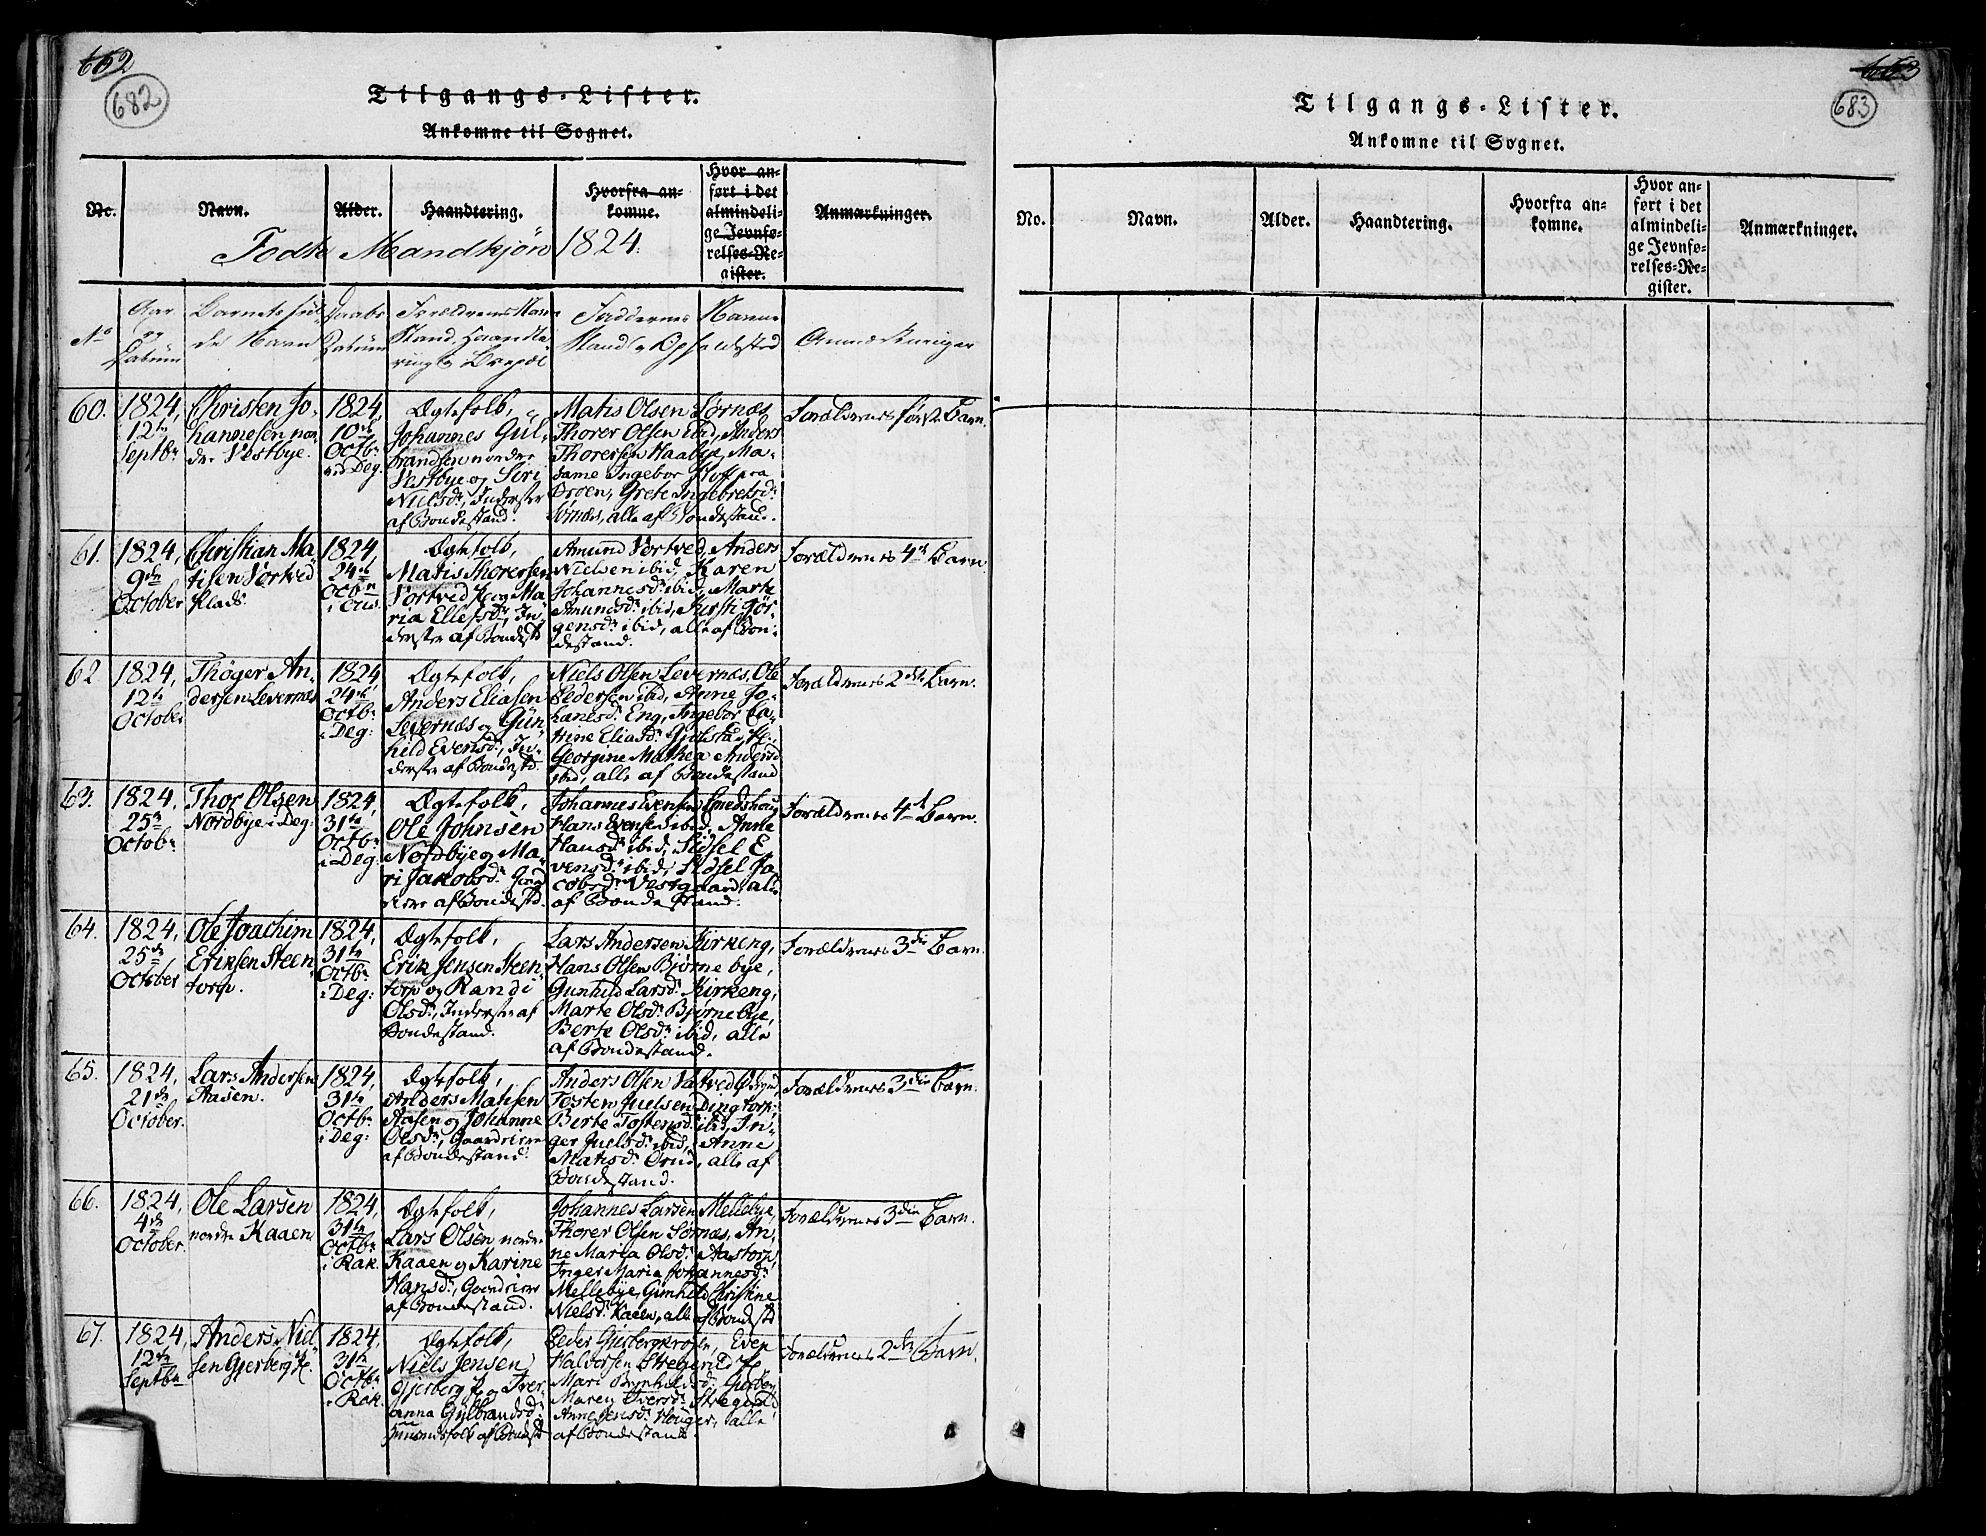 652
682
Tilgangs-Lister.
Ankomne til Sognet.
No.
Navn.
Alder.
Haandtering.
Hvorfra an-
komne.
Hvor an-
ført i det
almindeli-
ge Jevnfø-
relses-Re-
gister.
Anmærkninger.
Födte Mandkjön 1824.
No
Aar
og
Datum
Barnets ful-
de Navn
Daabs
Datum
Forældrenes Navn
Stand, Haandte-
ring og Bopæl
Faddernes Navne
Stand og Opholdsted
Anmærkninger
60.
1824,
12te
Septbr
Christen Jo-
hannesen nor-
dre Vestbye.
1824,
10de
Octbr
ved Deg.
Ægtefolk,
Johannes Gül-
brandsen nordre
Vestbye og Siri
Nielsdr, Inderster
af Bondestand.
Matis Olsen Sørnæs,
Thorer Olsen ibid, Anders
Thorersen Haabye, Ma-
dame Ingebor Hoff paa
Broen, Grete Ingebretsdr
Sørnæs, alle af Bondestand.
Forældrenes første Barn.
61.
1824,
9de
October
Christian Ma-
tisen Vortved
Plads.
1824,
24de
Octbr
Ægtefolk,
Matis Thorersen
Vortved Pl. og Ma-
ria Ellefsdr, In-
derster af Bondestd
Amund Vortved, Anders
Nielsen ibid, Karen
Johannesdr ibid, Marte
Amundsdr ibid, Kirsti Jör-
gensdr ibid, alle af Bon-
destand.
Forældrenes 4de Barn.
62
1824,
12te
October
Thöger An-
dersen Levernæs
1824,
24de
Octbr
i Deg:
Ægtefolk,
Anders Eliasen
Levernæs og Gün-
hild Evensdr, In-
derster af Bondestd.
Niels Olsen Levernæs, Ole
Pedersen ibid, Anne Jo-
hanesdr Eng, Ingebor Ca-
trine Eliasdr
Georgine Mathea Andersdr
ibid, alle af Bondestand
Forældrenes 2det Barn.
63.
1824,
25de
Octobr
Thor Olsen
Nordbye i Deg:
1824,
31te
Octbr
i Deg
Ægtefolk,
Ole Johnsen
Nordbye og Ma-
ri Jakobsdr Gaard-
eiere af Bondestd.
Johannes Evensen Smedshaug
Hans Evensen ibid, Anne
Hansdr ibid, Sidsel E-
vensdr ibid, Sidsel Ja-
cobsdr Vestgaard, alle
af Bondestand.
Forældrenes 4de Barn.
64.
1824,
25de
October
Ole Joachim
Eriksen Steen-
torp.
1824,
31te
Octbr
i Deg:
Ægtefolk,
Erik Jensen Steen-
torp og Randi
Olsdr, Inderster af
Bondestand.
Lars Andersen Kirkeng,
Hans Olsen Bjørnebye,
Gunhild Larsdr Kirkeng,
Marte Olsdr Bjørnebye,
Berte Olsdr ibid, alle
af Bondestand.
Forældrenes 3die Barn.
65.
1824,
21de
October.
Lars Andersen
Aasen.
1824,
31te
Octbr
i Deg:
Ægtefolk,
Anders Matisen
Aasen og Johanne
Olsdr, Gaardeiere
af Bondestand.
Anders Olsen Vatved
Tosten Juelsen Dingtorp,
Berte Tostensdr ibid, In-
ger Juelsdr ibid, Anne
Matisdr Orud, alle af
Bondestand.
Forældrenes 3die Barn.
66.
1824,
4de
October.
Ole Larsen
nordre Kaaen
1824,
31te
Octbr
i Rak.
Ægtefolk,
Lars Olsen nordre
Kaaen og Karine
Hansdr, Gaardeiere
af Bondestand.
Johannes Larsen Mellebye,
Thorer Olsen Sørnæs, An-
ne Maria Olsdr Aastorp,
Inger Maria Johannesdr
Mellebye, Gunhild Christine
Nielsdr Kaaen, alle af Bondestd
Forældrenes 3die Barn.
67.
1824,
12te
Septbr
Anders Niel-
sen Gjerberg Pl.
1824,
31te
Octbr
i Rak.
Ægtefolk,
Niels Jensen
Gjerberg Pl. og Iver-
anna Gulbrandsdr
Huusmdsfolk af Bondestd
Peder Gjerbergkrogen, Even
Halvorsen Stregerud Pl.
Mari Gjerberg
Maren Iversdr Stregerud
Anne Jensdr Houger, alle
af Bondestand.
Forældrenes 2det Barn.
653
683
Tilgangs-Lister.
Ankomne til Sognet.
No.
Navn.
Alder.
Haandtering.
Hvorfra an-
komne.
Hvor an-
ført i det
almindeli-
ge Jevnfø-
relses-Re-
gister.
Anmærkninger.